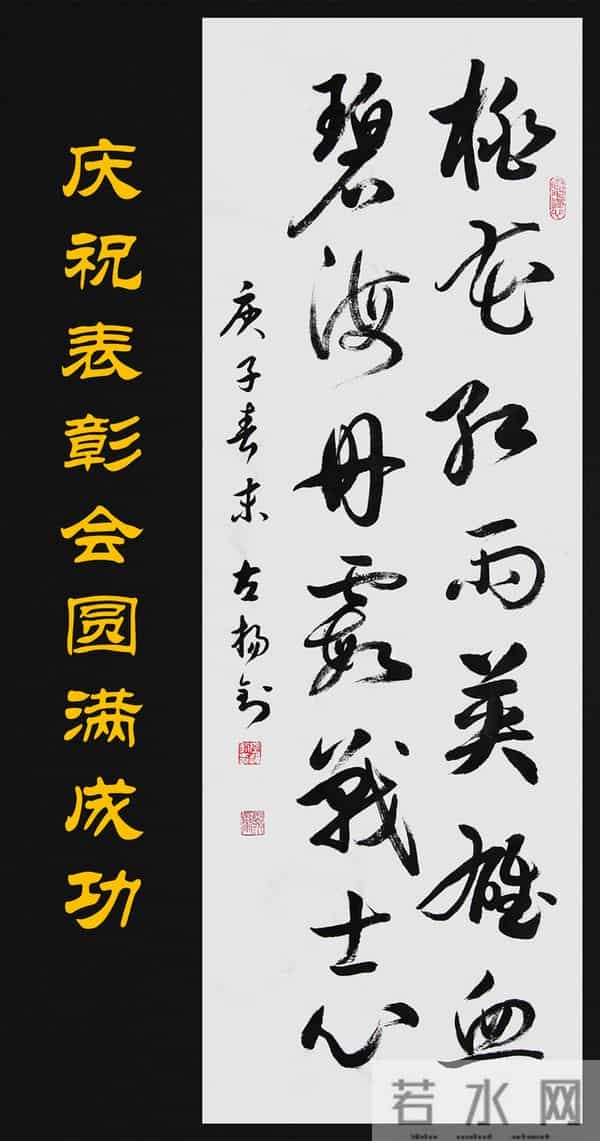 桃花红雨英雄血
碧海丹霞戰士心
庚子春末 古扬
庆祝表彰会圆满成功
若水网